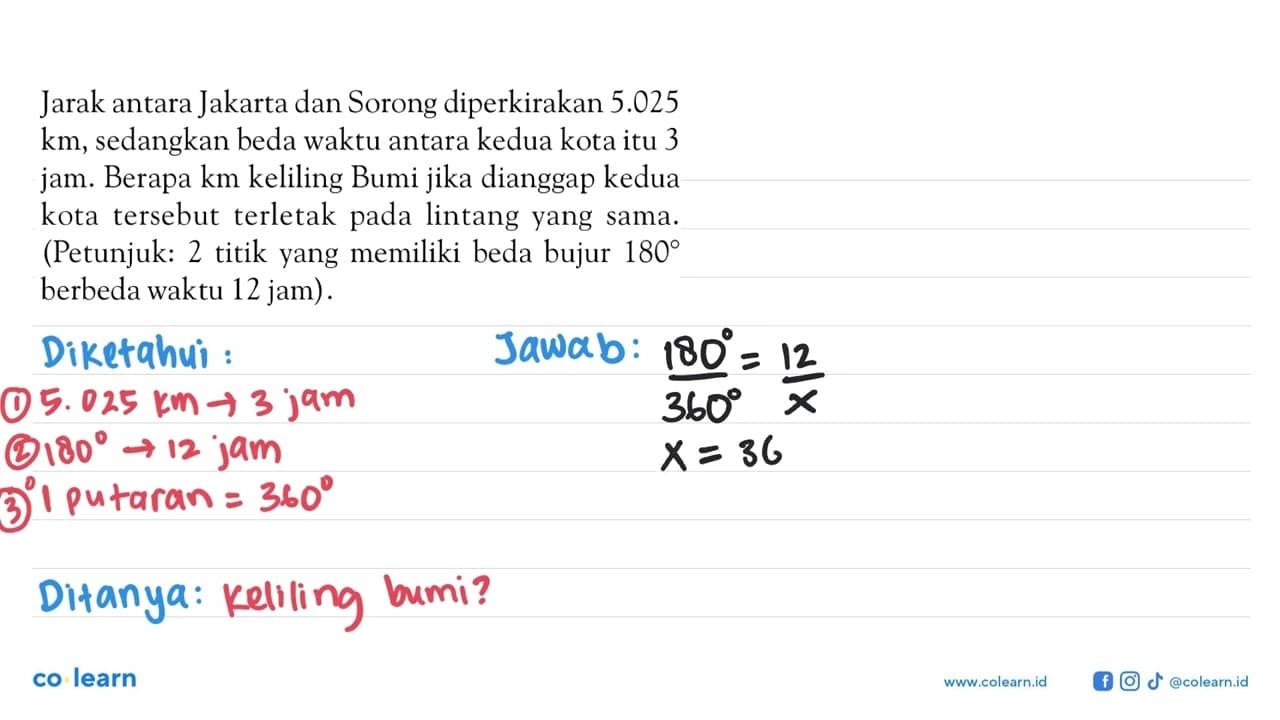 Jarak antara Jakarta dan Sorong diperkirakan 5.025
km, sedangkan beda waktu antara kedua kota itu 3
jam. Berapa km keliling Bumi jika dianggap kedua
kota tersebut terletak pada lintang yang sama.
(Petunjuk: 2 titik yang memiliki beda bujur 180°
berbeda waktu 12 jam).
Diketahui :
① 5.025 km → 3 jam
② 180° → 12 jam
③ 1 putaran = 360°
Ditanya: Keliling bumi?
Jawab: 180°/360° = 12/x
x = 36
co learn
www.colearn.id
@colearn.id